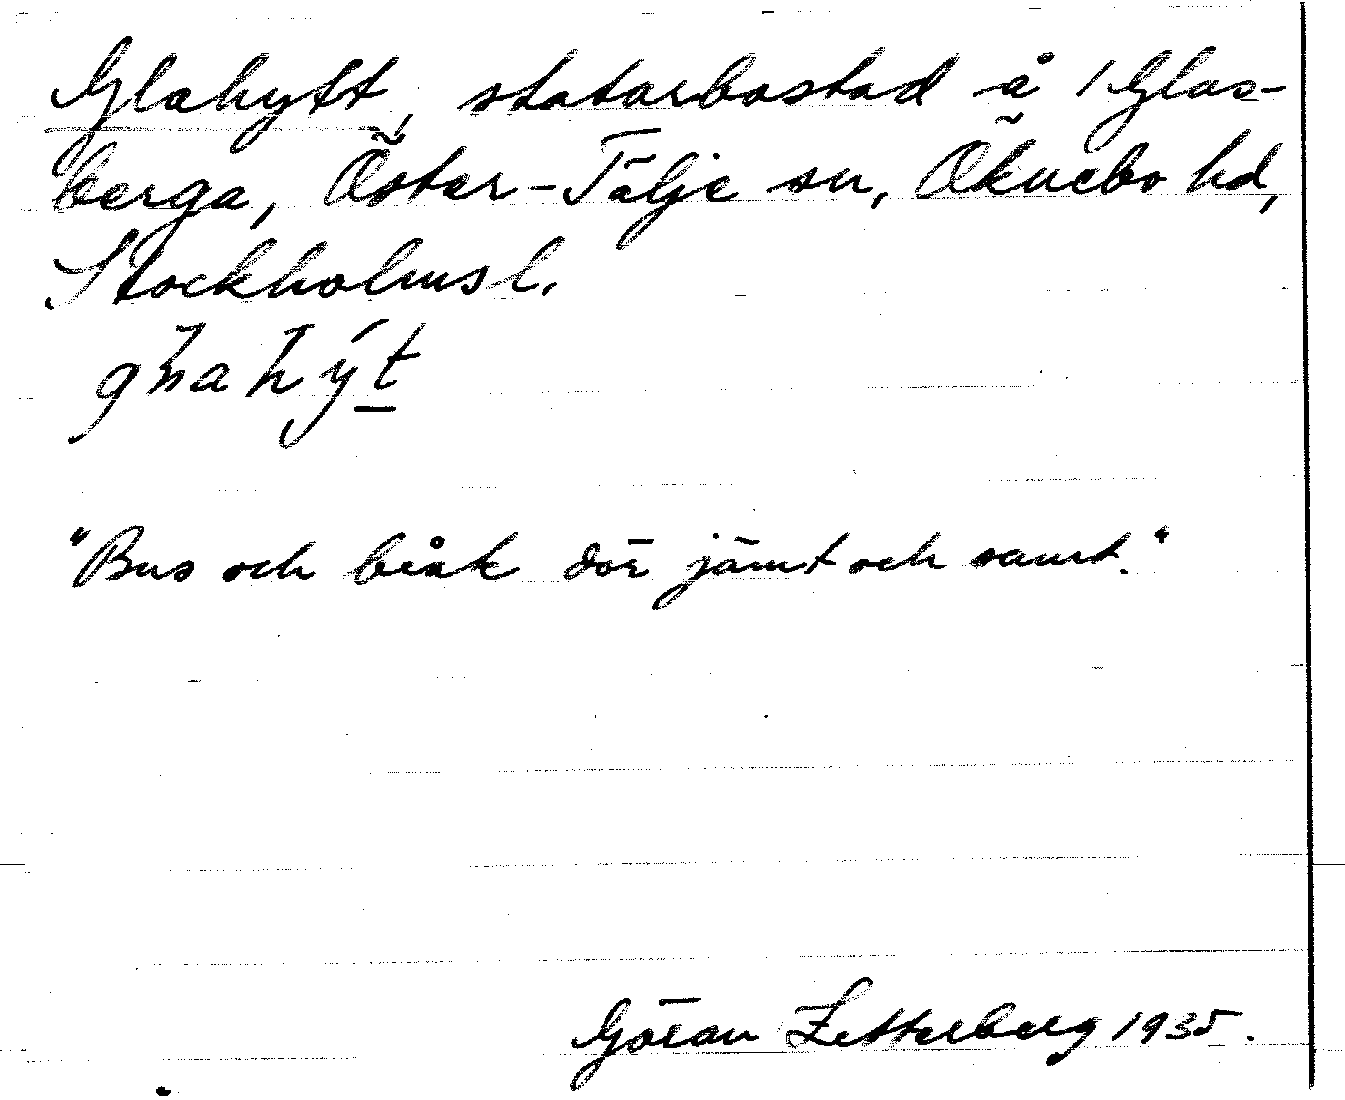 Glahytt, statarbostad å 1 Glas-
berga, Öster-Tälje sn, Öknebo hd,
Stockholms l.
"Bus och bråk dör jämt och samt."
Göran Zetterberg 1935.